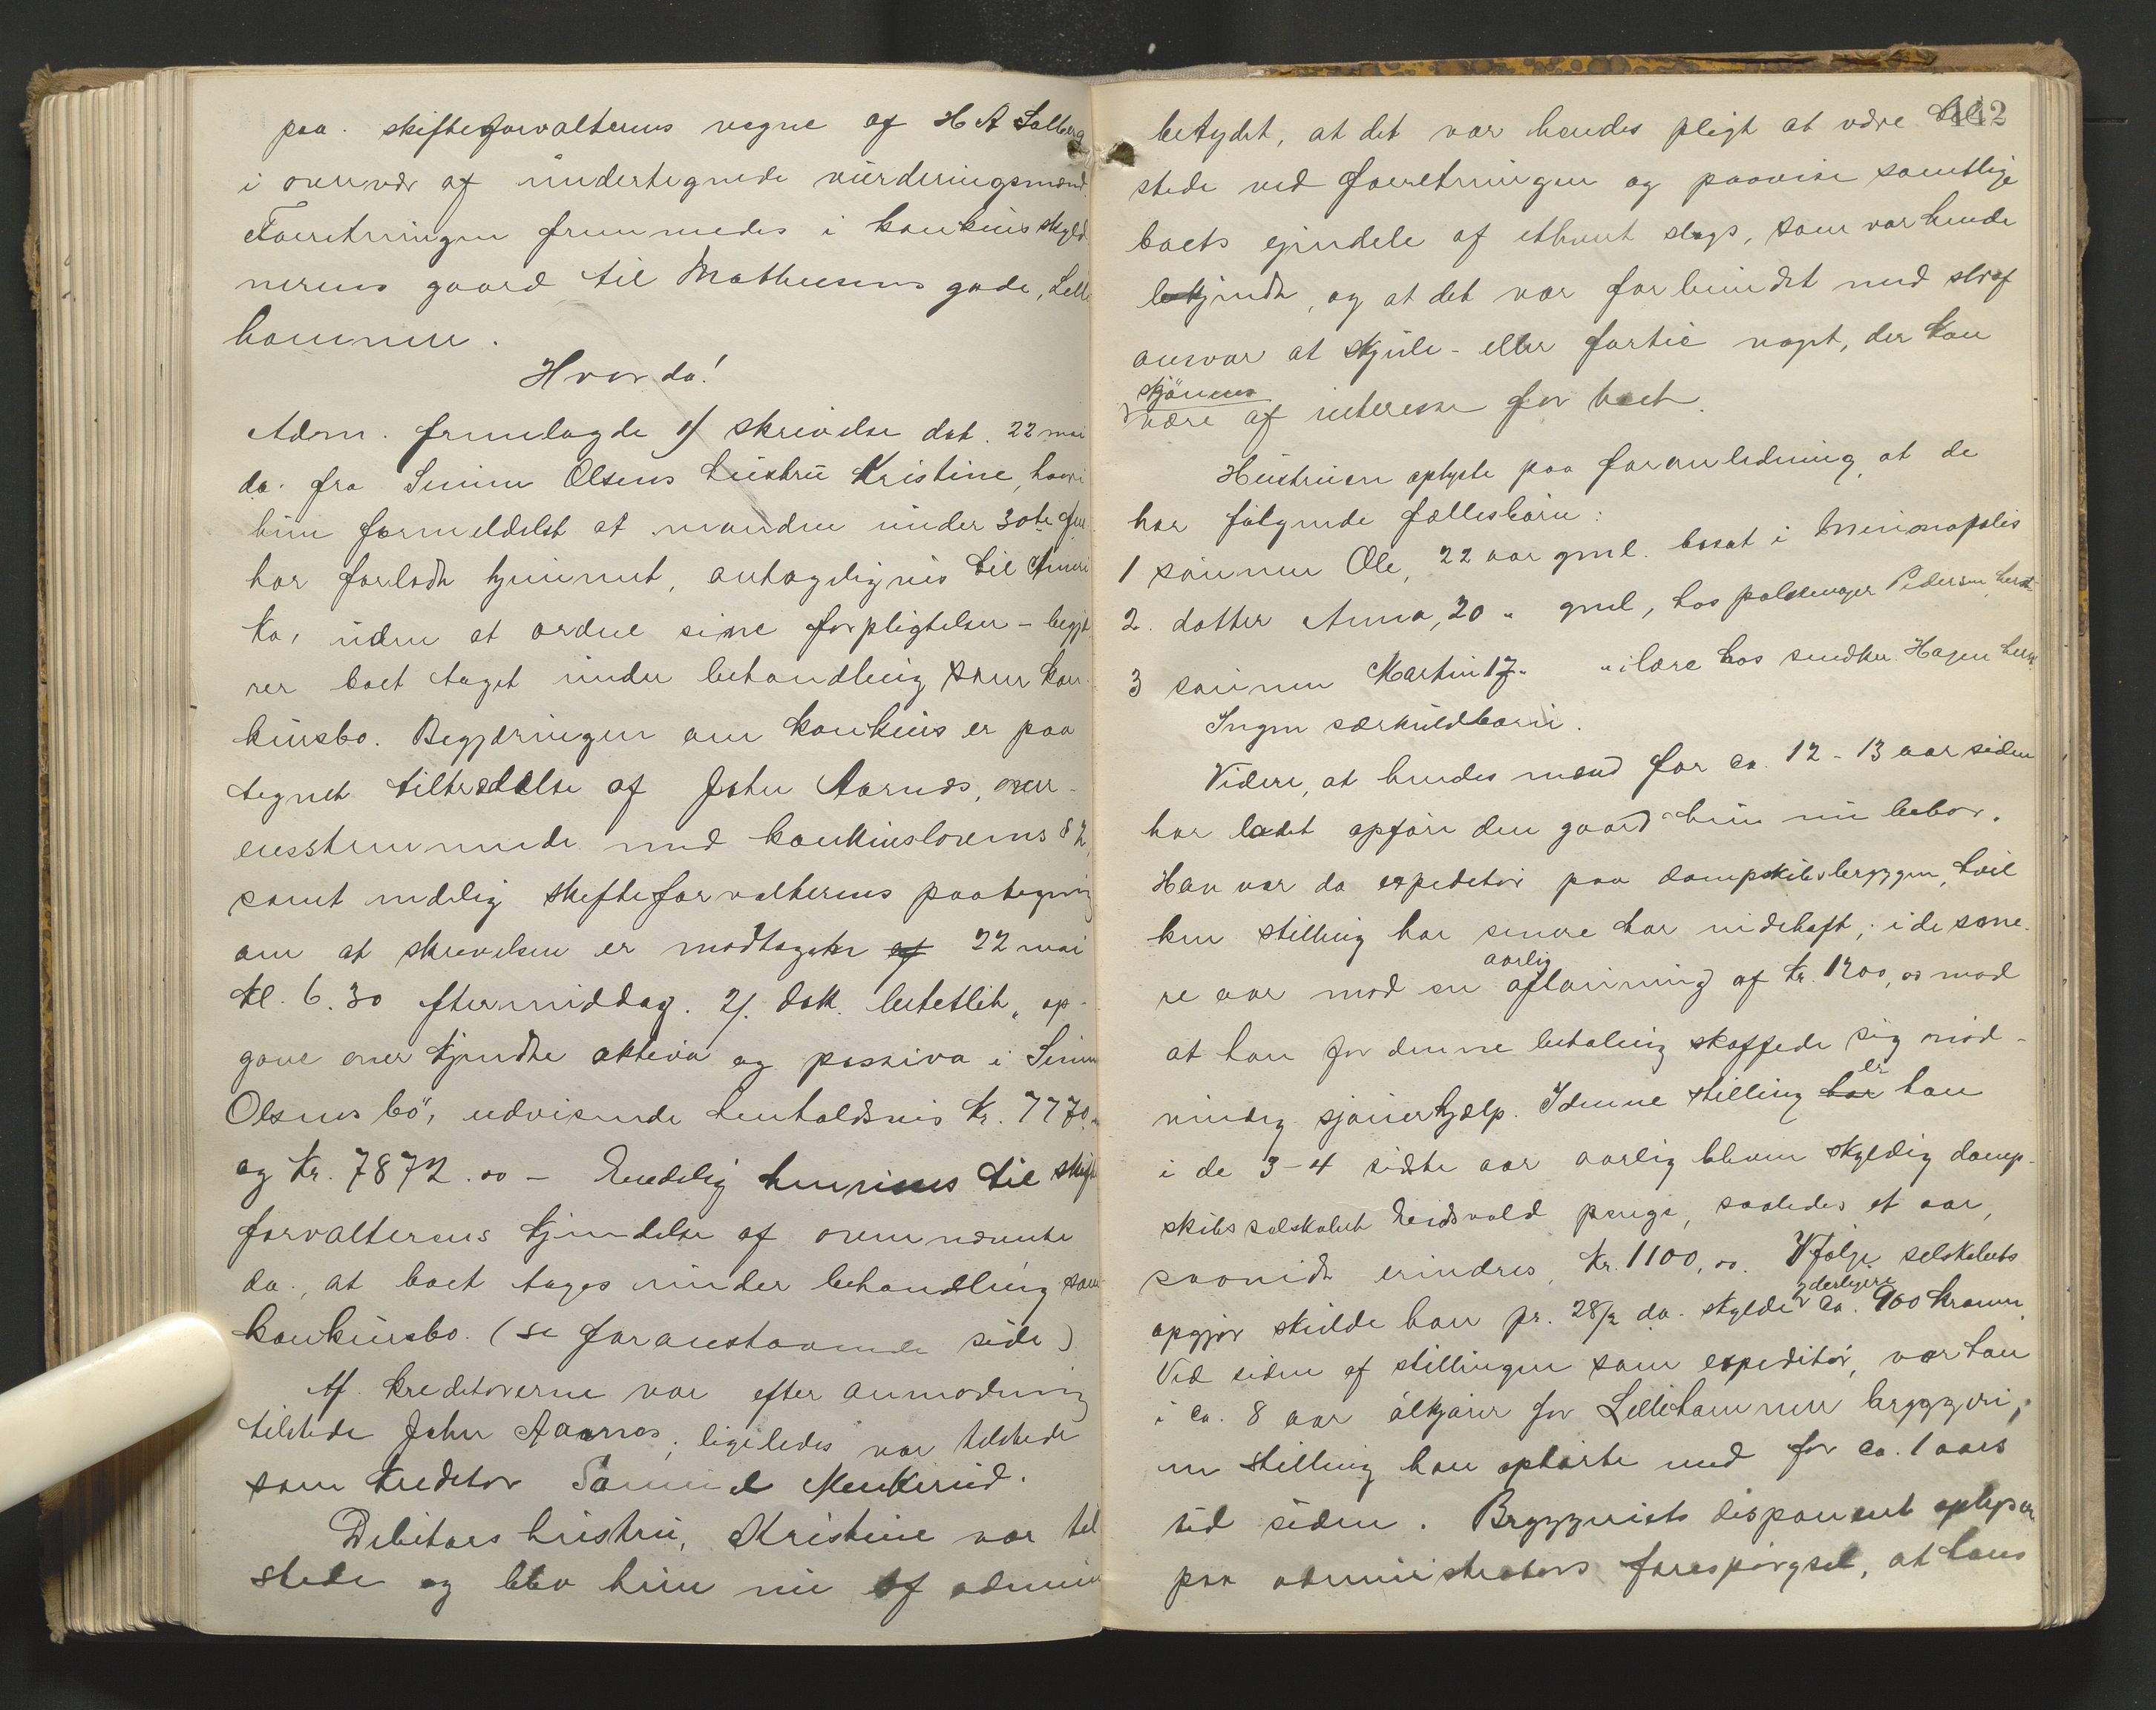 paa skifteforvalterens vegne af H A Solberg
i overvær af undertegnede vurderingsmænd
Forretningen fremmedes i konkursskyld
nerens gaard til Mathiesens gade, Lille
hammer.
Hvorda!
Adm. fremlagde 1/ skrivelse dat. 22 mai
d.a. fra Simen Olsens hustru Kristine, hvori
hun formeldelst at manden under 30te
har forladt hjemmet, antageligvis til Ameri
ka, uden at ordne sine forpligtelser - begjæ
rer boet taget under behandling som kon-
kursbo. Begjæringen om konkurs er paa
tegnet tiltrædelse af John Aarnæs, over-
ensstemmende med konkurslovens § 2,
samt endelig skifteforvalterens paategning
om at skrivelsen er modtaget af 22 mai
kl. 6.30 eftermiddag. 2/. dok. betitlet „op-
gave over kjendte aktiva og passiva i Simen
Olsens bo", udvisende henholdsvis kr. 7770.
og kr. 7872.00 - Endelig henvises til skifte
forvalterens kjendelse af ovennævnte
da., at boet tages under behandling som
konkursbo. (se foranstaaende side)
Af kreditorerne var efter anmodning
tilstede John Aarnæs; ligeledes var tilstede
som kreditor Samuel Menkerud.
Debitors hustru, Kristine var til
stede og blev hun nu af admini
betydet, at det var hendes pligt at være til 442
stede ved forretningen og paavise samtlige
boets eiendele af ethvert slags, som var hende
bekjendt, og at det var forbundet med straf
ansvar at skjule- eller fortie noget, der kan
skjønnes
være af interesse for boet.
Hustruen oplyste paa foranledning, at de
har følgende fællesbørn:
1 sønnen Ole, 22 aar gml. bosat i Minionapolis
2. datter Anna, 20 " gml, hos pølsemager Pedersen, herst.
3 sønnen Martin 17 " " i lære hos snedker Hagen herst.
Ingen særkuldbørn.
Videre, at hendes mand for ca. 12 - 13 aar siden
har ladet opføre den gaard hun nu bebor.
Han var da expeditør paa dampskibsbryggen, hvil
ken stilling han senere har indehaft; i de sene-
aarlig
re aar mod en aflønning af kr. 1200,00 mod
at han for denne betaling skaffede sig nød-
er
vendig sjouerhjælp. I denne stilling har han
i de 3-4 sidste aar aarlig bleven skyldig damp-
skibsselskabet Eidsvold penge, saaledes et aar,
saavidt erindres, kr. 1100,00. Ifølge selskabets
yderligere
opgjør skulde han pr. 28/2 d.a. skylde ca. 900 kroner
Ved siden af stillingen som expeditør, var han
i ca. 8 aar ølkjører for Lillehammer bryggeri;
en stilling han ophørte med for ca. 1 aars
tid siden. Bryggeriets disponent oplyser
paa administrators forespørgsel, at hans